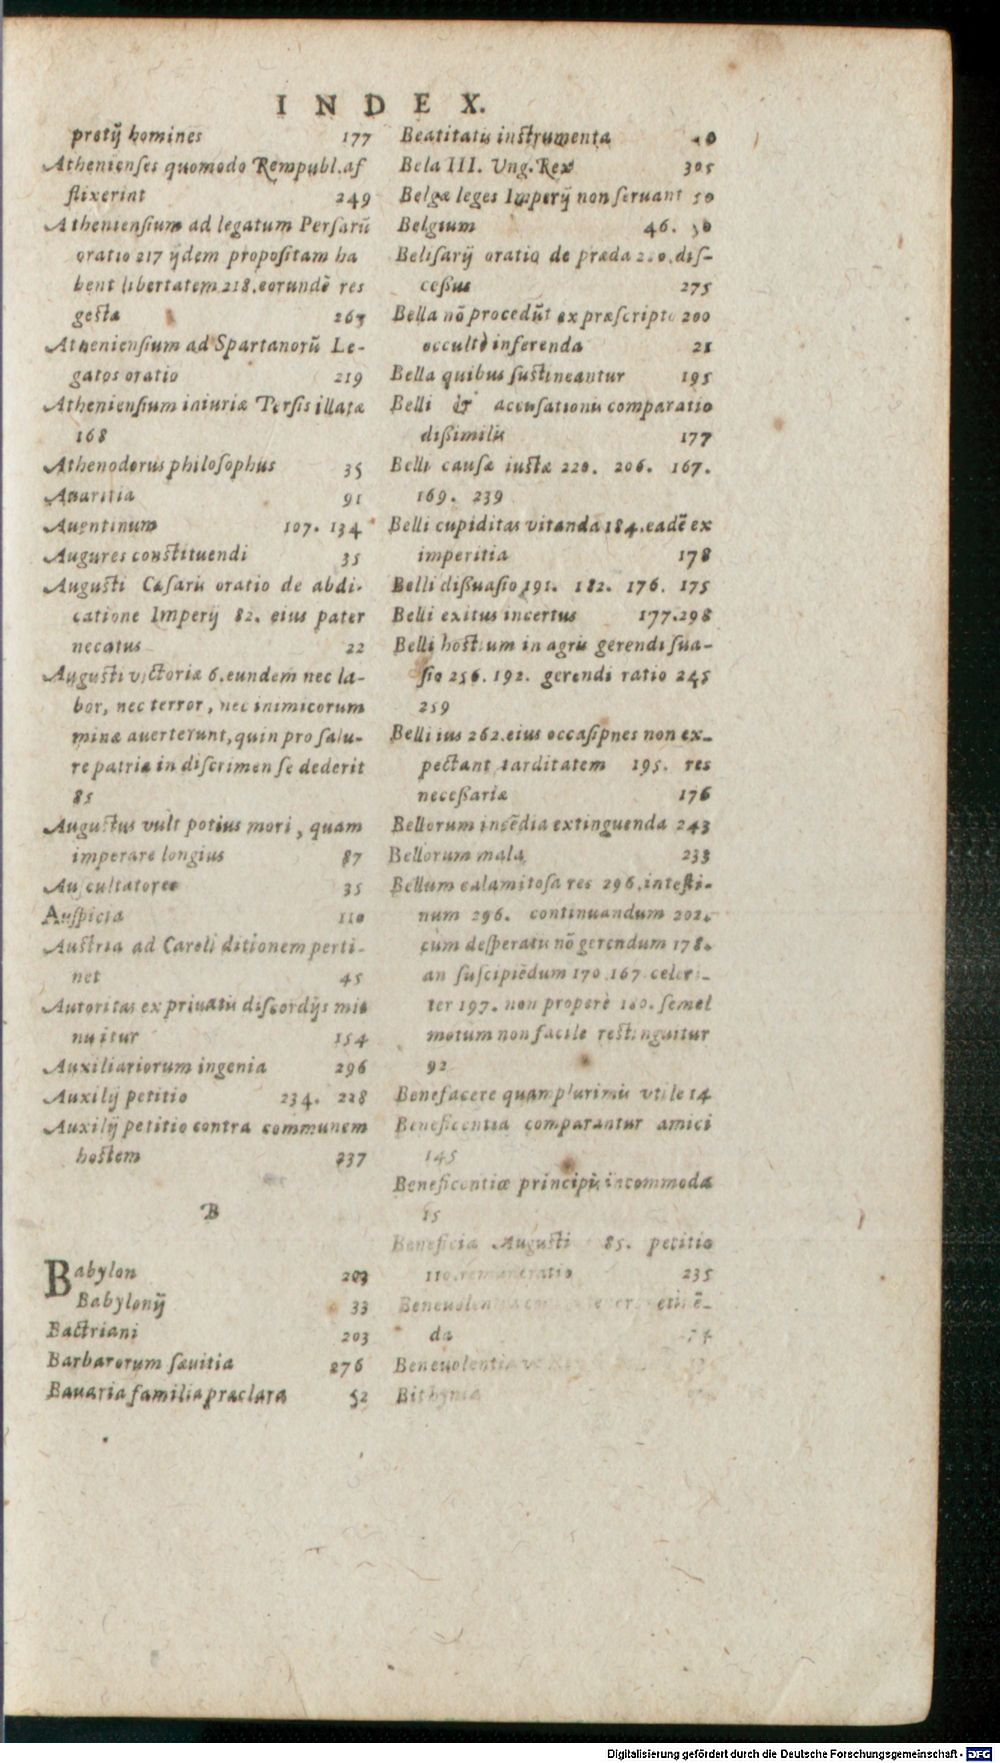 INDEX.
pretij homines 177
Athenienses quomodo Rempubl. af
flixerint 249
Atheniensium ad legatum Persarū
oratio 217 ijdem propositam ha
bent libertatem 218. eorundē res
gesta 267
Atheniensium ad Spartanorū Le-
gatos oratio 219
Atheniensium iniuriæ Persis illatæ
168
Athenodorus philosophus 35
Auaritia 91
Auentinum 107. 134
Augures constituendi 35
Augusti Cæsaris oratio de abdi-
catione Imperij 82. eius pater
necatus 22
Augusti victoriæ 6. eundem nec la-
bor, nec terror, nec inimicorum
minæ auerterunt, quin pro salu-
te patriæ in discrimen se dederit
85
Augustus vult potius mori, quam
imperare longius 87
Auscultatores 35
Auspicia 110
Austria ad Caroli ditionem perti-
net 45
Autoritas ex priuatis discordijs mi
nuitur 154
Auxiliariorum ingenia 296
Auxilij petitio 234. 228
Auxilij petitio contra communem
hostem 237
B
Babylon 203
Babylonij 33
Bactriani 203
Barbarorum sæuitia 276
Bauaria familia præclara 52
Beatitatis instrumenta
Bela III. Ung. Rex 305
Belgæ leges Imperij non seruant 50
Belgium 46. 50
Belisarij oratio de præda dis-
cessus 275
Bella nō procedūt ex præscripto 200
occultè inferenda 21
Bella quibus sustineantur 195
Belli & accusationis comparatio
dißimilis 177
Belli causæ iustæ 220. 206. 167.
169. 239
Belli cupiditas vitanda 184. eadē ex
imperitia 178
Belli dißuasio 191. 182. 176. 175
Belli exitus incertus 177. 298
Belli hostium in agris gerendi sua-
sio 256. 192. gerendi ratio 245
259
Belli ius 262. eius occasiones non ex-
pectant tarditatem 195. res
neceßariæ 176
Bellorum incēdia extinguenda 243
Bellorum mala 233
Bellum calamitosa res 296. intesti-
num 296. continuandum 202.
cum desperatis nō gerendum 178.
an suscipiēdum 170. 167. celeri-
ter 197. non properè 180. semel
motum non facile restinguitur
92
Benefacere quamplurimis vtile 14
Beneficentia comparantur amici
145
Beneficentiæ principis incommoda
15
Beneficia Augusti 85. petitio
110. remuneratio 235
Beneuolentia etinē-
da
Beneuolentia
Bithynia
Digitalisierung gefördert durch die Deutsche Forschungsgemeinschaft - DFG